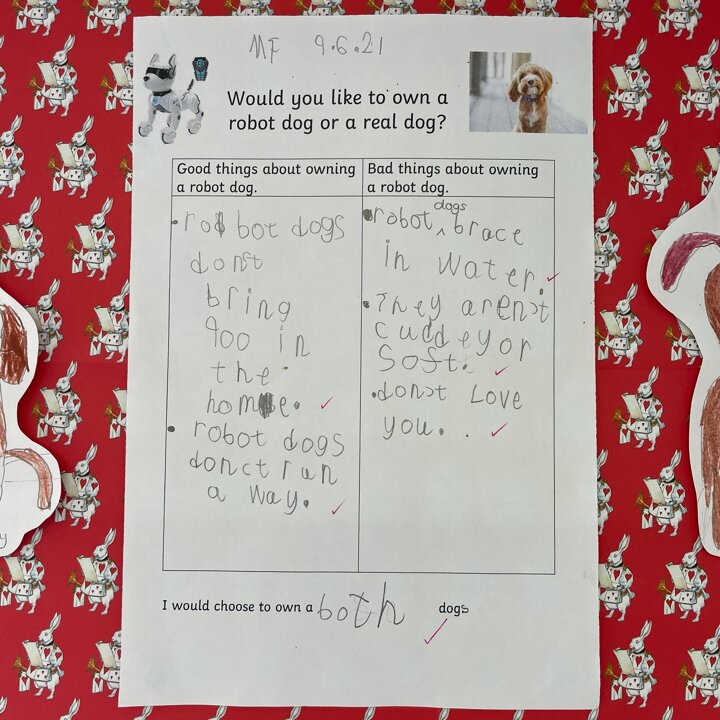 MF 9.6.21
Would you like to own a
robot dog or a real dog?
Good things about owning
a robot dog.
• robot dogs
don't
bring
goo in
the
home.
• robot dogs
donct run
a way.
Bad things about owning
a robot dog.
• robot dogs brace
in water.
• They aren't
cuddey or
soft.
• don't Love
you.
I would choose to own a both dogs